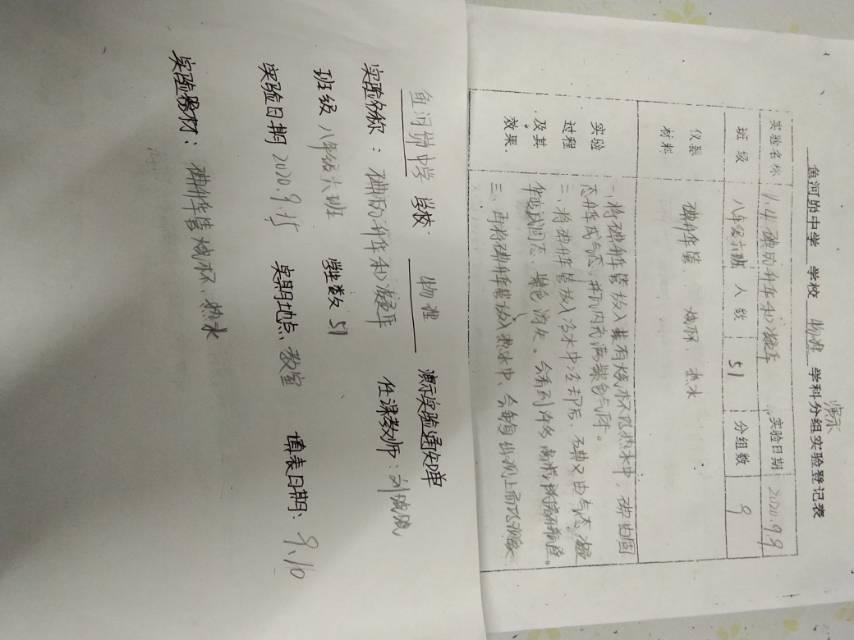 鱼河峁中学 学校 物理 学科分组实验登记表
演示
实验名称 1.4 碘的升华和凝华 实验日期 2020.9.9
班级 八年级六班 人数 51 分组数 9
仪器材料 碘升华管 烧杯、热水
实验过程及其效果
一、将碘升华管放入装有烧杯的热水中，碘由固
态升华成气态，并管内充满紫色气体。
二、将碘升华管放入冷水中冷却后，碘又由气态凝
华变成固态，紫色消失，会看到许多
三、再将碘升华管放入热水中，会重复出现上面的现象
鱼河峁中学 学校 物理 演示实验通知单
实验名称：碘的升华和凝华 任课教师：刘
班级 八年级六班 学生数 51
实验日期 2020.9.15 实验地点、教室 填表日期：9.10
实验器材：碘升华管 烧杯、热水